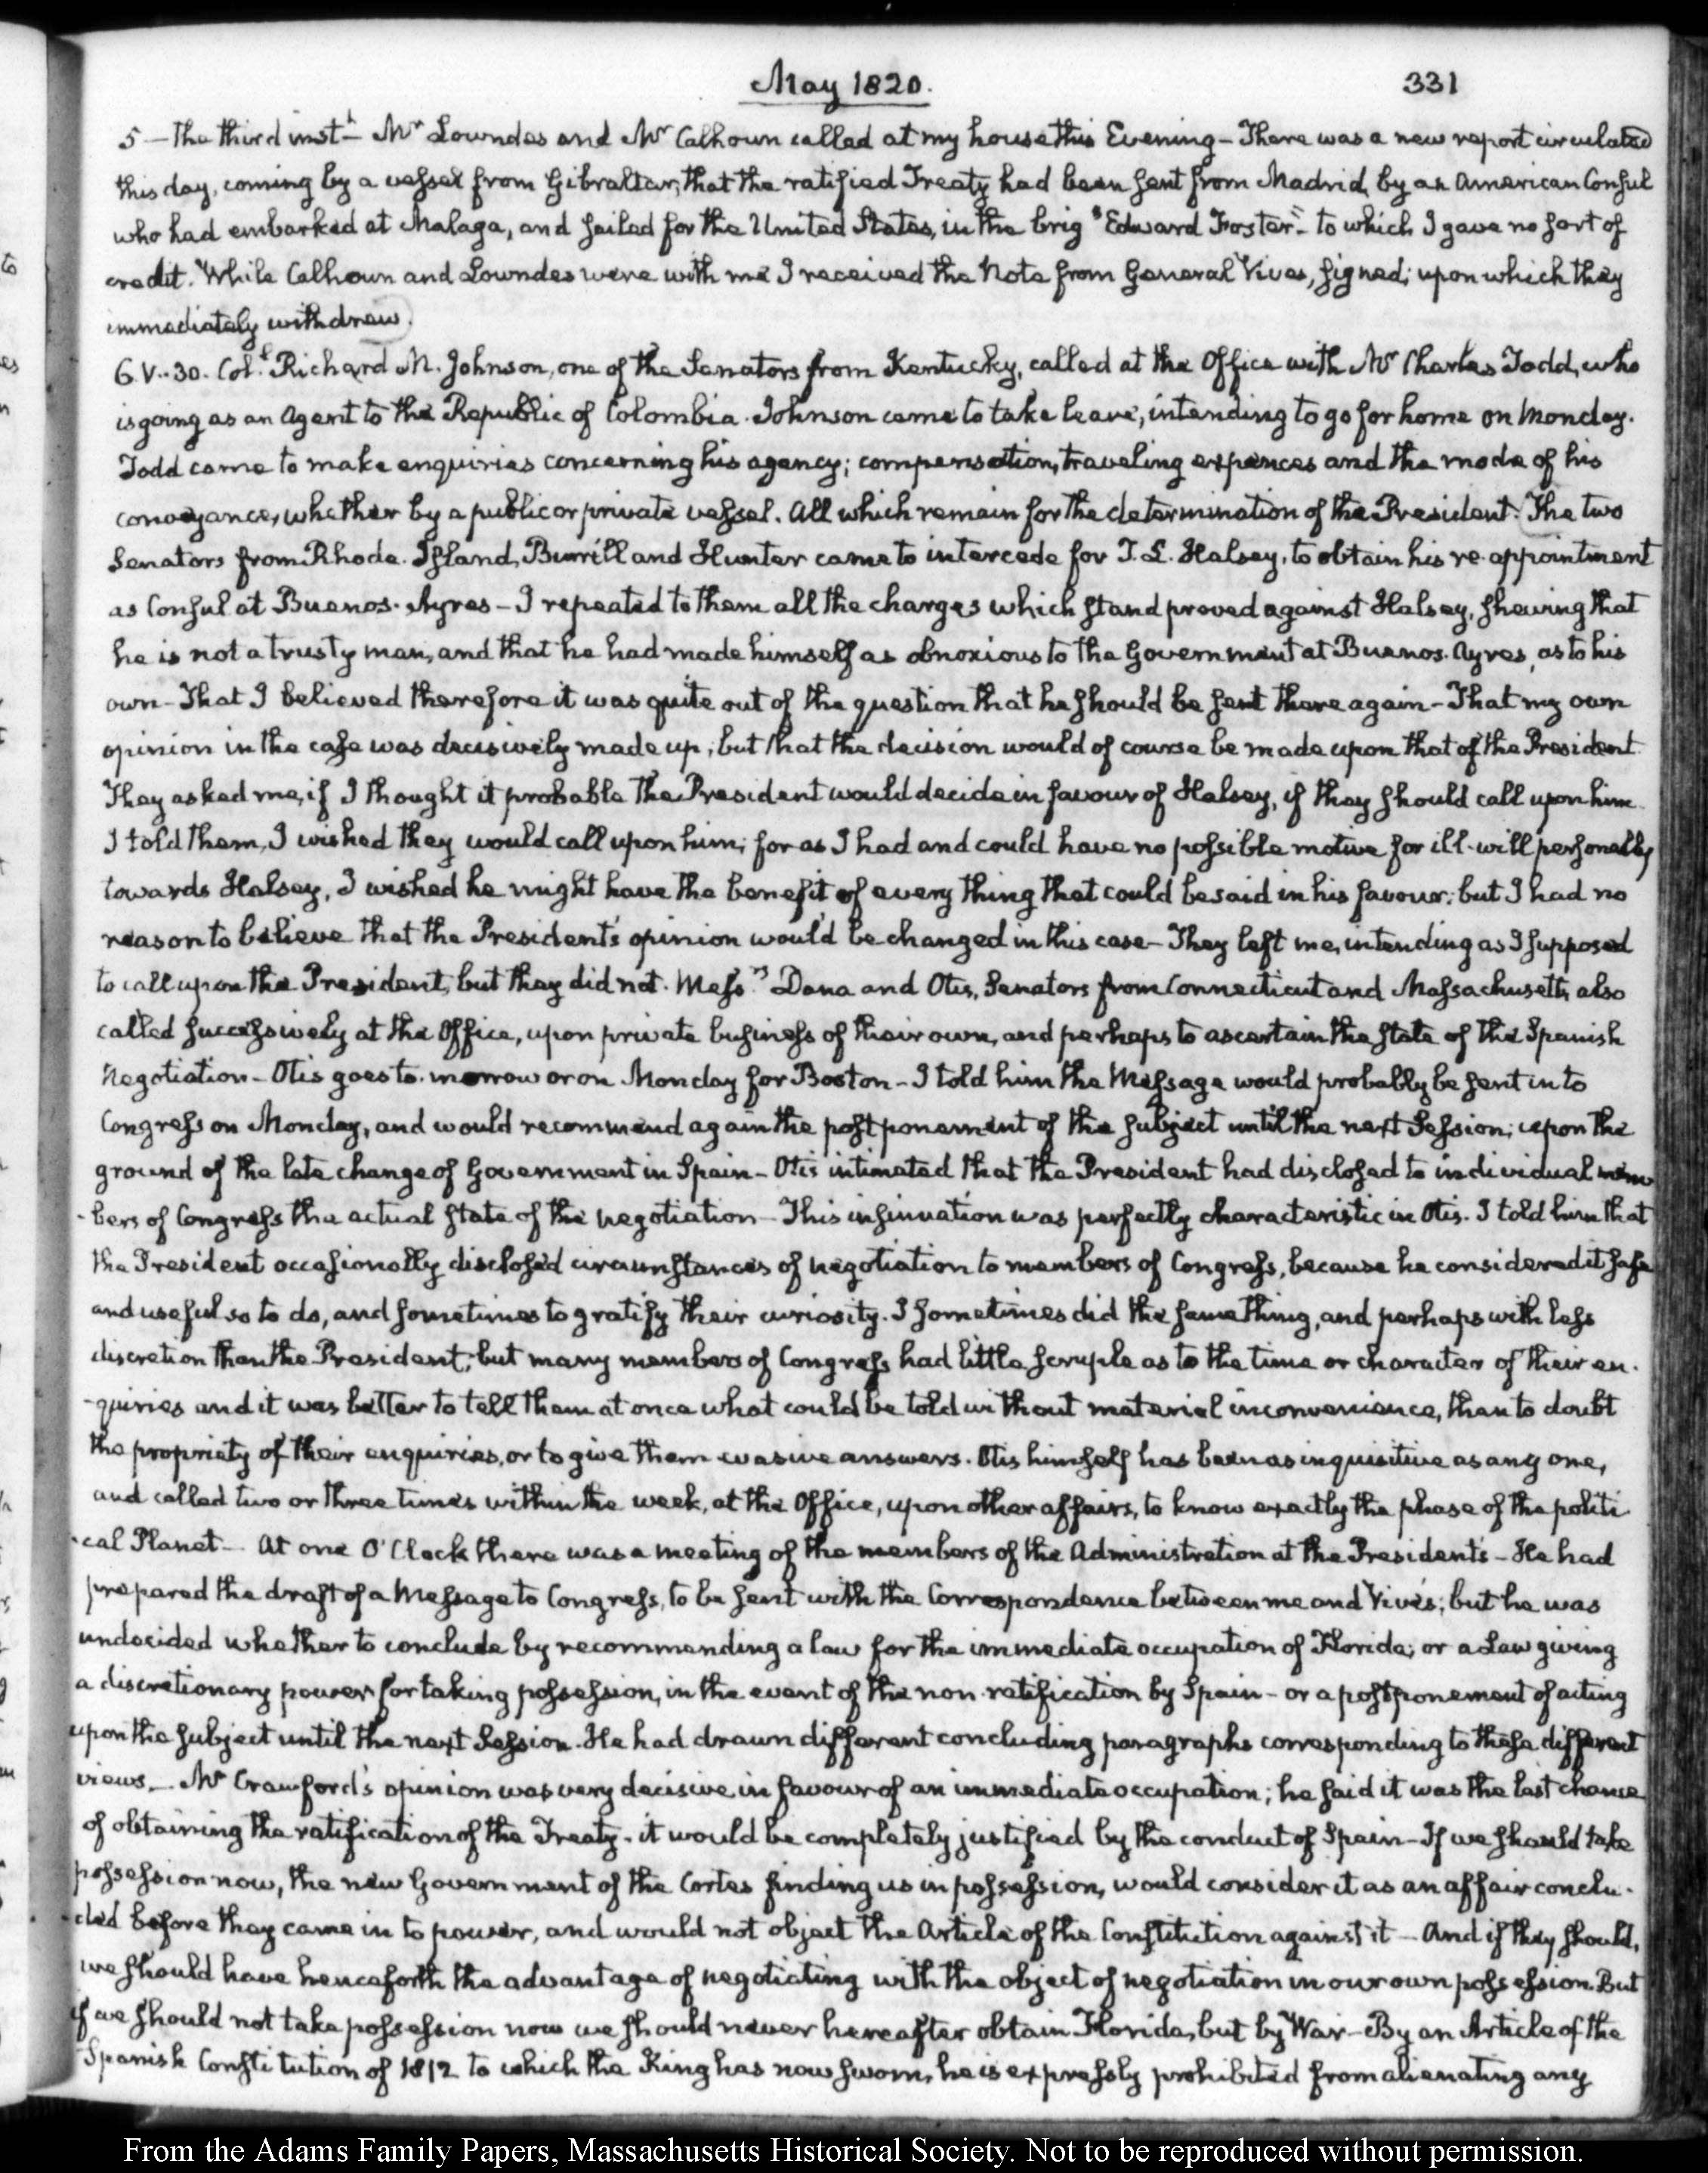 May 1820.
331
5 — the third inst.t Mr Lowndes and Mr Calhoun called at my house this Evening — There was a new report circulated
this day, coming by a vessel from Gibraltar, that the ratified Treaty had been sent from Madrid, by an American Consul
who had embarked at Malaga, and sailed for the United States, in the brig "Edward Foster" — to which I gave no sort of
credit. While Calhoun and Lowndes were with me I received the Note from General Vives, signed; upon which they
immediately withdrew.
6. V..30. Coll. Richard M. Johnson, one of the Senators from Kentucky, called at the Office with Mr Charles Todd, who
is going as an Agent to the Republic of Colombia. Johnson came to take leave, intending to go for home on Monday.
Todd came to make enquiries concerning his agency; compensation, traveling expences and the mode of his
conveyance, whether by a public or private vessel. All which remain for the determination of the President. The two
Senators from Rhode-Island, Burrill and Hunter came to intercede for T. L. Halsey, to obtain his re-appointment
as Consul at Buenos-Ayres — I repeated to them all the charges which stand proved against Halsey, shewing that
he is not a trusty man, and that he had made himself as obnoxious to the Government at Buenos-Ayres, as to his
own — That I believed therefore it was quite out of the question that he should be sent there again — That my own
opinion in the case was decisively made up; but that the decision would of course be made upon that of the President.
They asked me, if I thought it probable the President would decide in favour of Halsey, if they should call upon him.
I told them, I wished they would call upon him; for as I had and could have no possible motive for ill-will personally
towards Halsey, I wished he might have the benefit of every thing that could be said in his favour: but I had no
reason to believe that the President's opinion would be changed in this case — They left me, intending as I supposed
to call upon the President, but they did not. Messrs Dana and Otis, Senators from Connecticut and Massachusetts, also
called successively at the Office, upon private business of their own, and perhaps to ascertain the state of the Spanish
Negotiation — Otis goes to-morrow or on Monday for Boston — I told him the Message would probably be sent in to
Congress on Monday, and would recommend again the postponement of the subject until the next Session; upon the
ground of the late change of Government in Spain — Otis intimated that the President had disclosed to individual mem
-bers of Congress the actual state of the negotiation — This insinuation was perfectly characteristic in Otis. I told him that
the President occasionally disclosed circumstances of negotiation to members of Congress, because he considered it safe
and useful so to do, and sometimes to gratify their curiosity. I sometimes did the same thing, and perhaps with less
discretion than the President; but many members of Congress had little scruple as to the time or character of their en-
-quiries and it was better to tell them at once what could be told without material inconvenience, than to doubt
the propriety of their enquiries, or to give them evasive answers. Otis himself has been as inquisitive as any one,
and called two or three times within the week, at the Office, upon other affairs, to know exactly the phase of the politi
-cal Planet — At one O'Clock there was a meeting of the members of the Administration at the President's — He had
prepared the draft of a Message to Congress, to be sent with the Correspondence between me and Vives; but he was
undecided whether to conclude by recommending a law for the immediate occupation of Florida; or a Law giving
a discretionary power for taking possession, in the event of the non-ratification by Spain — or a postponement of acting
upon the subject until the next Session. He had drawn different concluding paragraphs corresponding to these different
views — Mr Crawford's opinion was very decisive in favour of an immediate occupation; he said it was the last chance
of obtaining the ratification of the Treaty — it would be completely justified by the conduct of Spain — If we should take
possession now, the new Government of the Cortes finding us in possession, would consider it as an affair conclu-
-ded before they came in to power, and would not object the Article of the Constitution against it — And if they should,
we should have henceforth the advantage of negotiating with the object of negotiation in our own possession. But
if we should not take possession now we should never hereafter obtain Florida, but by War — By an Article of the
Spanish Constitution of 1812 to which the King has now sworn, he is expressly prohibited from alienating any
From the Adams Family Papers, Massachusetts Historical Society. Not to be reproduced without permission.